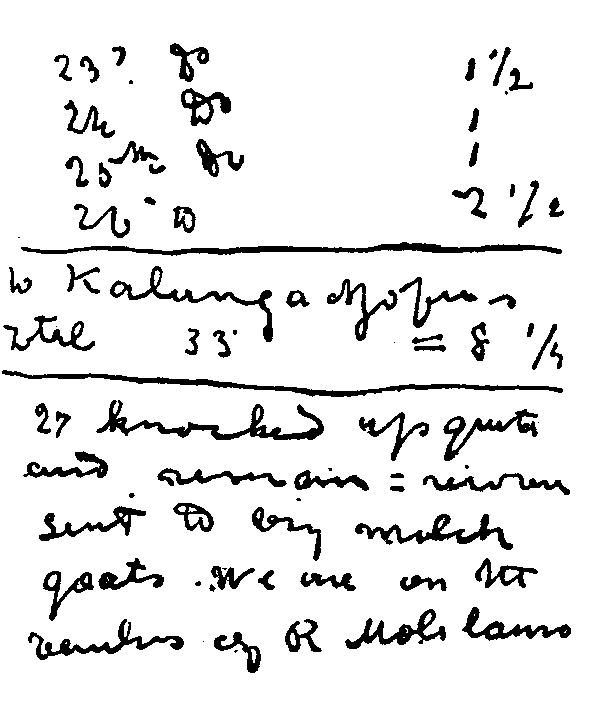 23ʳ Do 1 1/2
24 Do 1
25 Do 1
26 to 2 1/2
to Kalunganjofu
33 = 8 1/4
27 knocked up quite
and remain =
sent to buy milch
goats. We are on the
banks of R Molilamo